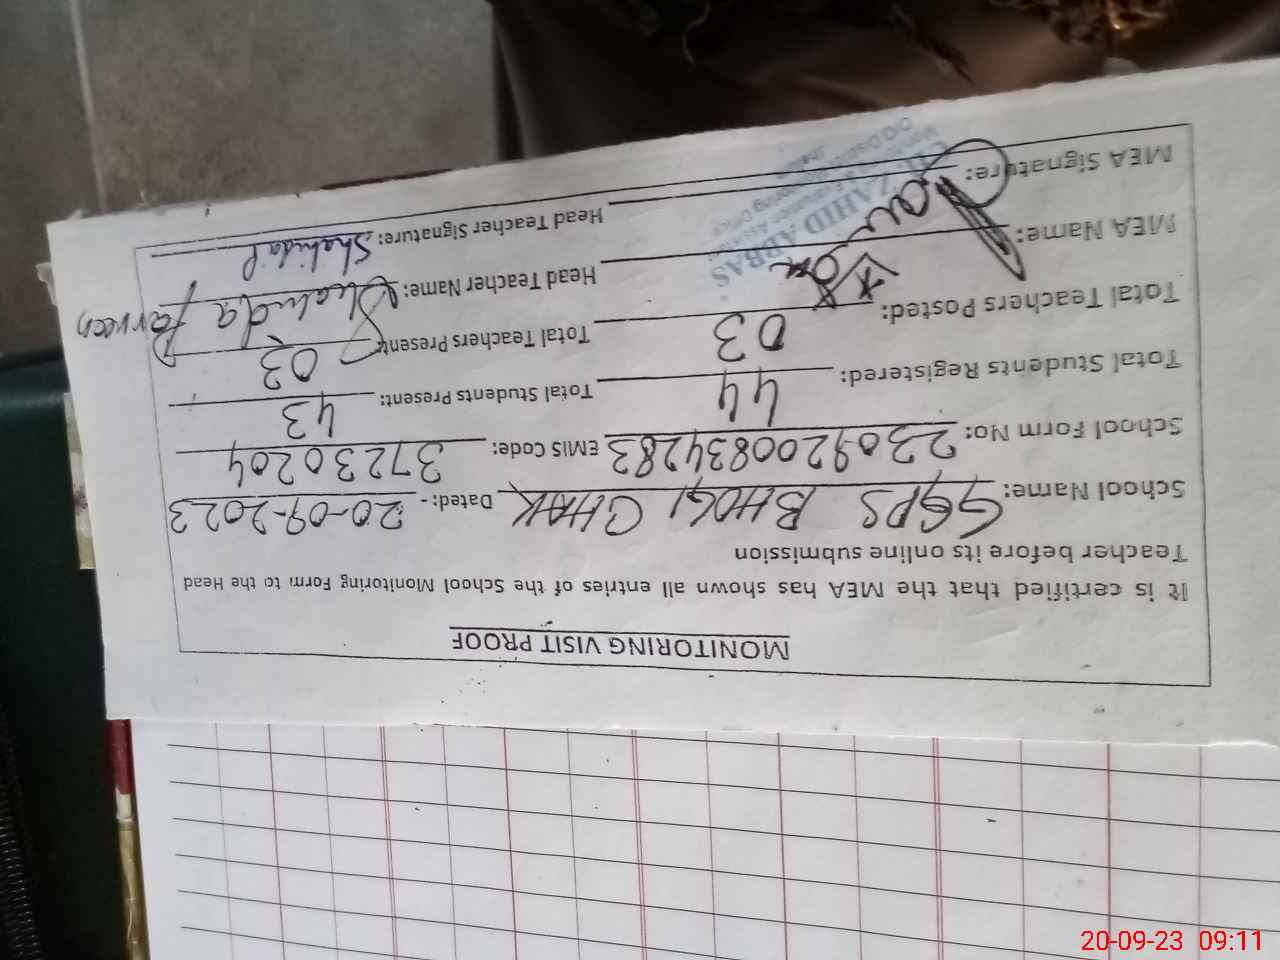 MONITORING VISIT PROOF
It is certified that the MEA has shown all entries of the School Monitoring Form to the Head
Teacher before its online submission
School Name: GGPS BHOGI CHAK Dated:- 20-09-2023
School Form No: 2309200834283 EMIS Code: 37230204
Total Students Registered: 44 Total Students Present: 43
Total Teachers Posted: 03 Total Teachers Present: 03
MEA Name: Head Teacher Name: Shahida Parveen
MEA Signature: Head Teacher Signature: Shahida P
ZAHID ABBAS
20-09-23 09:11